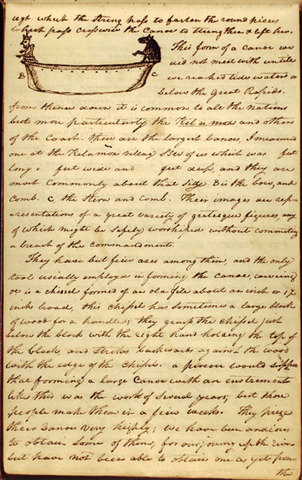 ugh which the strong pass to fasten the round pieces
which pass crosswise the Canoe to strengthen & lift her.
This form of a Canoe we
did not meet with untill
we reached tide water or
below the Great Rapids.
B C
from thence down it is common to all the nations
but more particularly the Kil a mox and others
of the Coast. These are the largest Canoes, I measured
one at the Kilamox Village S SW of us which was feet
long feet wide and feet deep, and they are
most commonly about that Size. B is the bow, and
Comb. C, the stern and comb. Their images are repr-
esentations of a great variety of grotesque figures, any
of which might be safely worshiped without commiting
a breach of the commandments.
They have but few axes among them, and the only
tool usially employed in forming the Canoe, carveing
&c is a chisel formed of an old file about an inch or 1½
inchs broad, this chissel has sometimes a large block
of wood for a handle; they grasp the chissel just
below the block with the right hand holding the top of
the block, and strikes backwards against the wood
with the edge of the chissel. a person would suppose
that forming a large Canoe with an enstriment
like this was the work of several years; but those
people make them in a fiew weeks. They prize
their Canoes very highly; we have been anxious
to obtain some of them, for our journey up the river
but have not been able to obtain one as yet from
the